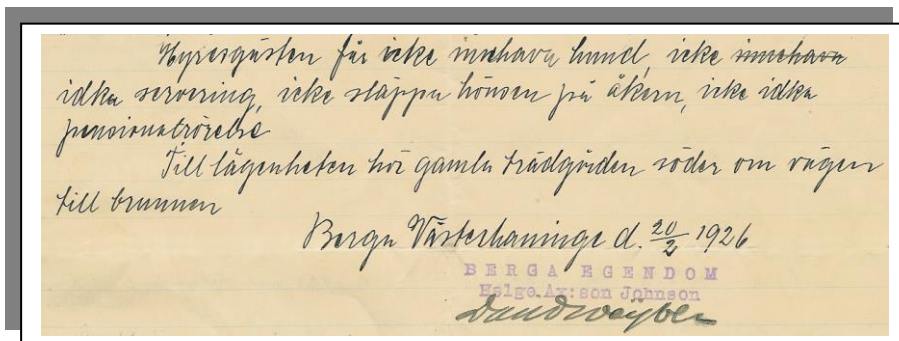 Hyresgästen får icke innehava hund, icke innehava
idka servering, icke släppa hönsen på åkern, icke idka
pensionatrörelse
Till lägenheten hör gamla trädgården söder om vägen
till brunnen
Berga Västerhaninge d. 20/2 1926
BERGA EGENDOM
Helge Ax:son Johnson